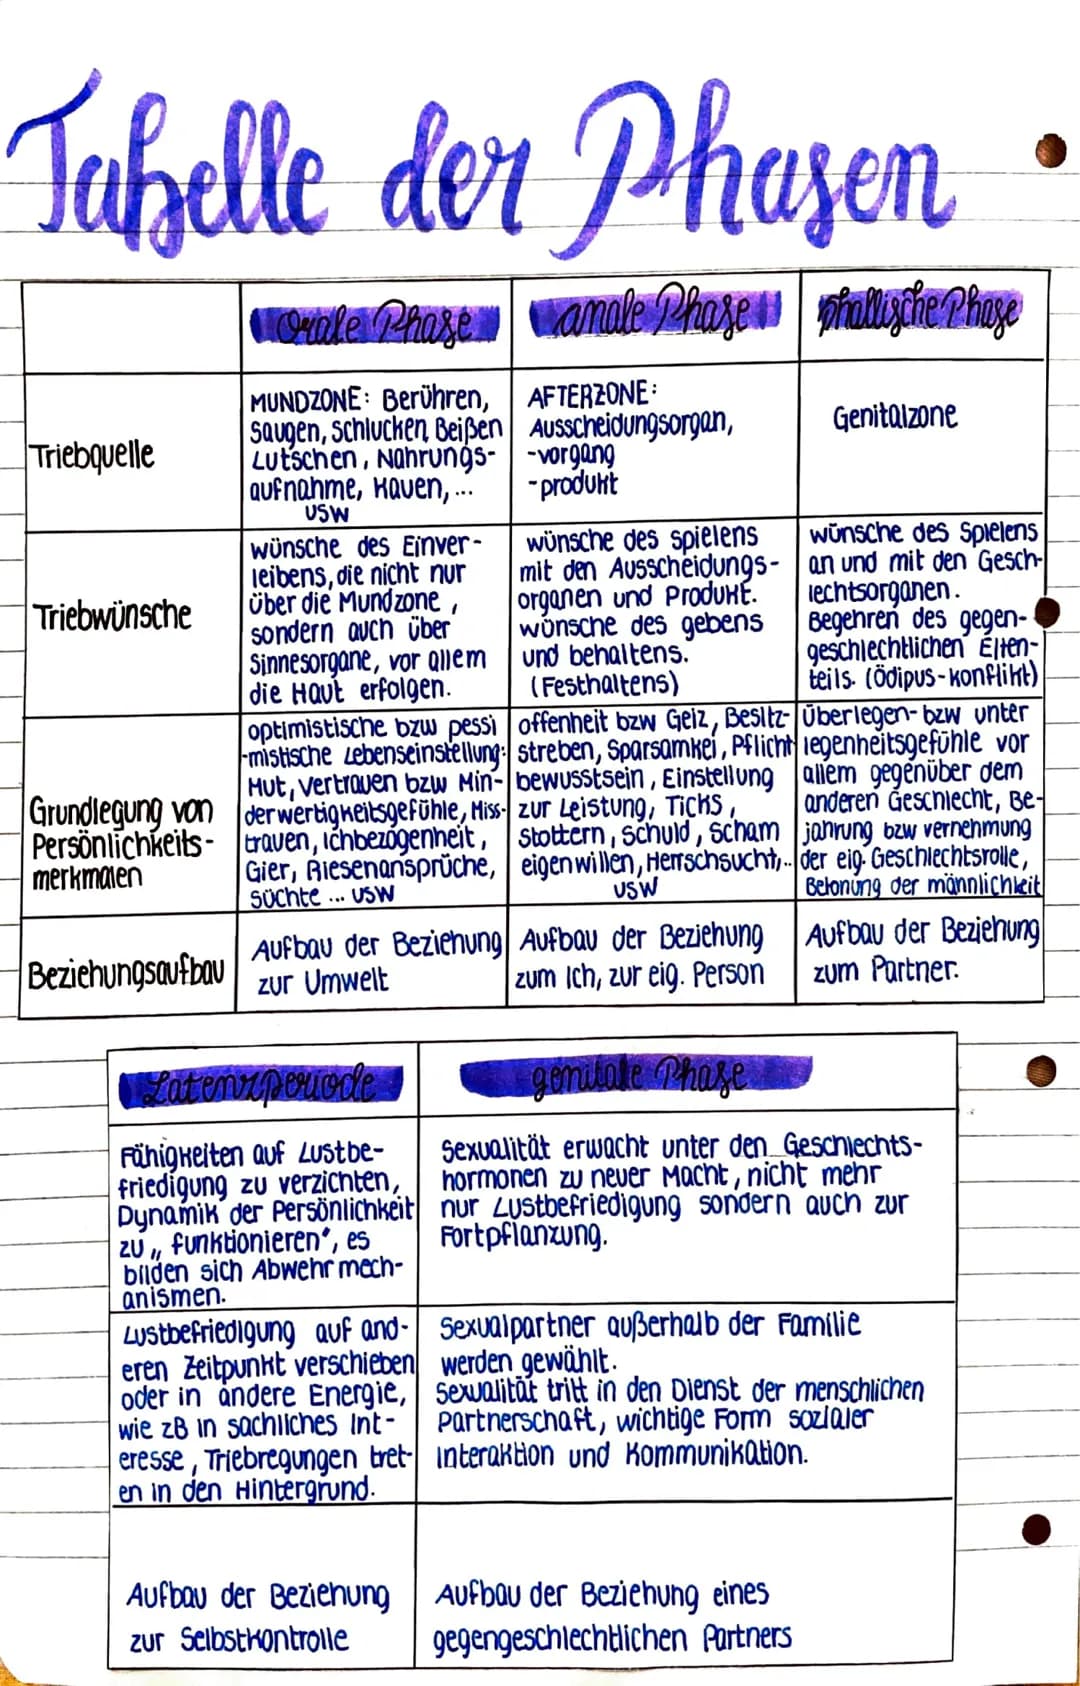 Tabelle der Phasen
orale Phase
anale Phase
phallische Phase
Triebquelle
MUNDZONE: Berühren,
Saugen, Schlucken, Beißen
Lutschen, Nahrungs-
aufnahme, Kauen, ...
usw
AFTERZONE:
Ausscheidungsorgan,
-vorgang
-produkt
Genitalzone
Triebwünsche
wünsche des Einver-
leibens, die nicht nur
über die Mundzone,
sondern auch über
Sinnesorgane, vor allem
die Haut erfolgen.
wünsche des spielens
mit den Ausscheidungs-
organen und Produkt.
wünsche des gebens
und behaltens.
(Festhaltens)
wünsche des Spielens
an und mit den Gesch-
lechtsorganen.
Begehren des gegen-
geschlechtlichen Elten-
teils. (Ödipus-konflikt)
Grundlegung von
Persönlichkeits-
merkmalen
optimistische bzw pessi
-mistische Lebenseinstellung:
Mut, Vertrauen bzw Min-
derwertigkeitsgefühle, Miss-
trauen, ichbezogenheit,
Gier, Riesenansprüche,
Süchte ... usw
offenheit bzw Geiz, Besitz-
streben, Sparsamkei, Pflicht
bewusstsein, Einstellung
zur Leistung, Ticks,
Stottern, Schuld, Scham
eigenwillen, Herrschsucht,..
usw
Überlegen- bzw unter
legenheitsgefühle vor
allem gegenüber dem
anderen Geschlecht, Be-
jahrung bzw vernehmung
der eig. Geschlechtsrolle,
Betonung der männlichkeit
Beziehungsaufbau
Aufbau der Beziehung
zur Umwelt
Aufbau der Beziehung
zum Ich, zur eig. Person
Aufbau der Beziehung
zum Partner.
Latenzperiode
genitale Phase
Fähigkeiten auf Lustbe-
friedigung zu verzichten,
Dynamik der Persönlichkeit
zu „funktionieren", es
bilden sich Abwehrmech-
anismen.
Sexualität erwacht unter den Geschlechts-
hormonen zu neuer Macht, nicht mehr
nur Lustbefriedigung sondern auch zur
Fortpflanzung.
Lustbefriedigung auf and-
eren Zeitpunkt verschieben
oder in andere Energie,
wie zB in sachliches Int-
eresse, Triebregungen tret-
en in den Hintergrund.
Sexualpartner außerhalb der Familie
werden gewählt.
Sexualität tritt in den Dienst der menschlichen
Partnerschaft, wichtige Form sozialer
Interaktion und Kommunikation.
Aufbau der Beziehung
zur Selbstkontrolle
Aufbau der Beziehung eines
gegengeschlechtlichen Partners